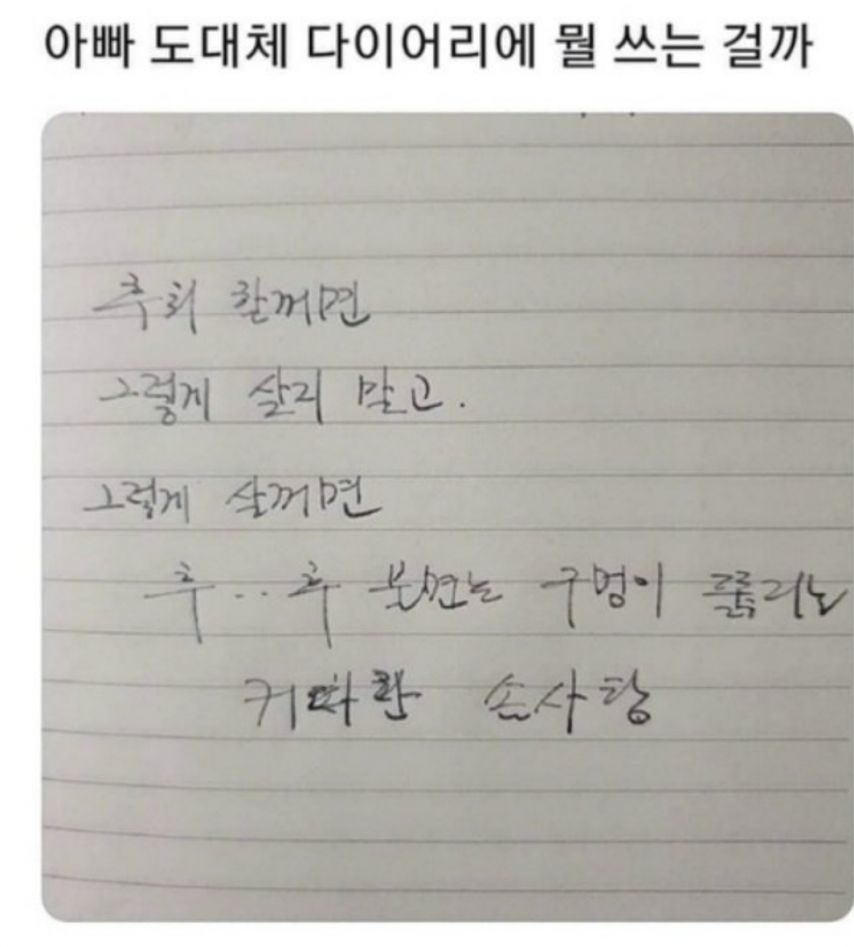 아빠 도대체 다이어리에 뭘 쓰는 걸까
후회 할꺼면
그렇게 살지 말고.
그렇게 살꺼면
후..후 불면은 구멍이 뚫리는
커다란 솜사탕